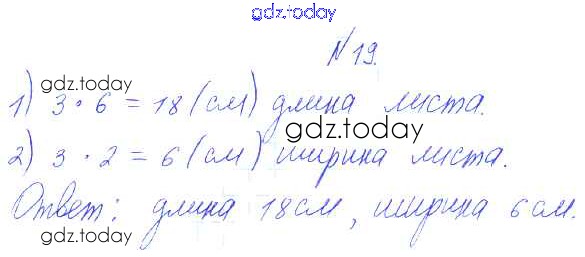 gdz.today
№19.
gdz.today
1) 3 · 6 = 18 (см) длина листа.
gdz.today
2) 3 · 2 = 6 (см) ширина листа.
Ответ: длина 18 см, ширина 6 см.
gdz.today
gdz.today